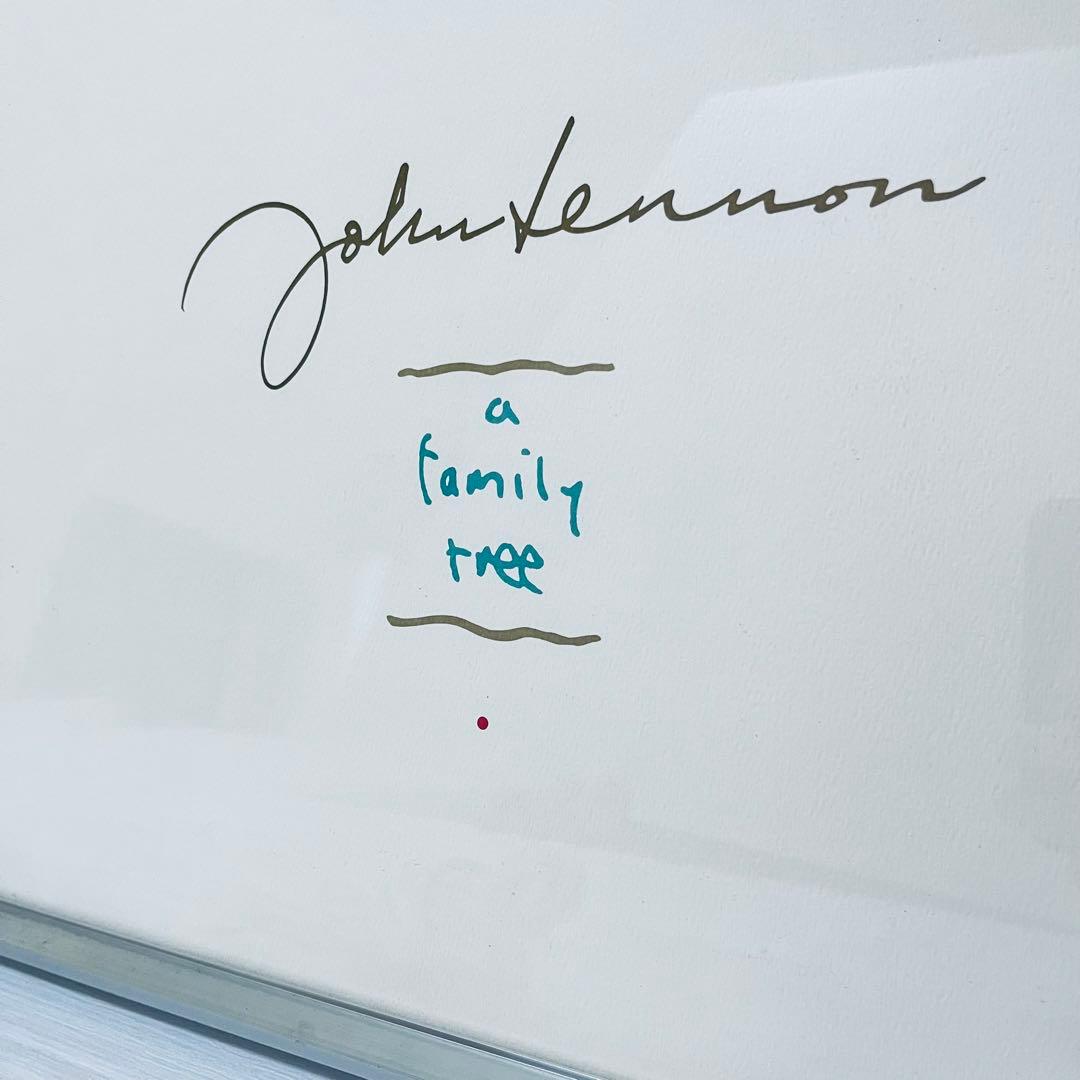 John Lennon
a
family
tree